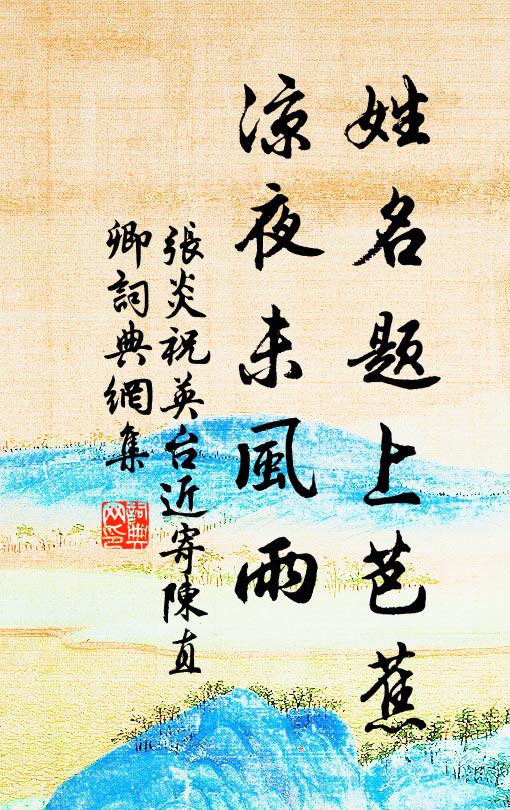 姓名題上芭蕉
涼夜未風雨
張炎祝英台近寄陳直
卿詞典網集
詞典